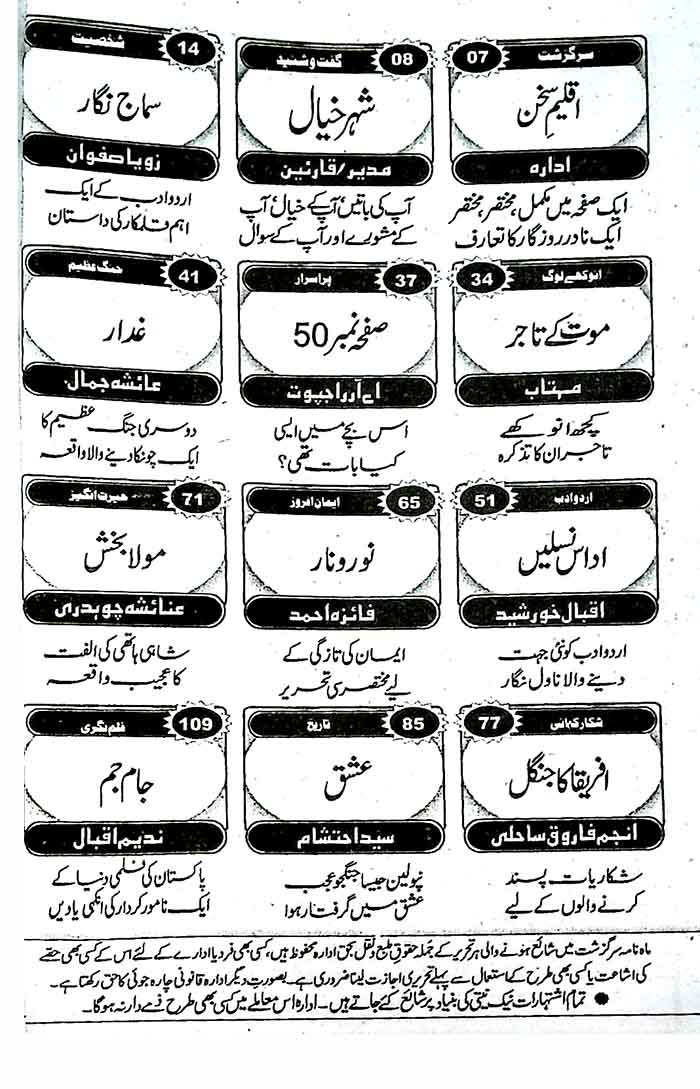 سرگزشت
07
اقلیمِ سخن
ادارہ
ایک صفحہ میں مکمل، مختصر، مختصر
ایک نادر روزگار کا تعارف
گفت و شنید
08
شہر خیال
مدیر/قارئین
آپ کی باتیں آپ کے خیال، آپ
کے مشورے اور آپ کے سوال
شخصیت
14
سماج نگار
زویا صفوان
اردو ادب کے ایک
اہم قلمکار کی داستان
انوکھے لوگ
34
موت کے تاجر
مہتاب
کچھ انوکھے
تاجران کا تذکرہ
پراسرار
37
صفحہ نمبر 50
اے آر راجپوت
اس بچے میں ایسی
کیا بات تھی؟
جنگ عظیم
41
غدار
عائشہ جمال
دوسری جنگ عظیم کا
ایک چونکا دینے والا واقعہ
اردو ادب
51
اداس نسلیں
اقبال خورشید
اردو ادب کو نئی جہت
دینے والا ناول نگار
ایمان افروز
65
نور و نار
فائزہ احمد
ایمان کی تازگی کے
لیے مختصر سی تحریر
حیرت انگیز
71
مولا بخش
عنائشہ چوہدری
شاہی ہاتھی کی الفت
کا عجیب واقعہ
شکار کہانی
77
افریقا کا جنگل
انجم فاروق ساحلی
شکاریات پسند
کرنے والوں کے لیے
تاریخ
85
عشق
سید احتشام
نپولین جیسا جنگجو عجب
عشق میں گرفتار ہوا
فلم نگری
109
جام جم
ندیم اقبال
پاکستان کی فلمی دنیا کے
ایک نامور کردار کی انکہی یادیں
ماہنامہ سرگزشت میں شائع ہونے والی ہر تحریر کے جملہ حقوق طبع و نقل بحق ادارہ محفوظ ہیں، کسی بھی فرد یا ادارے کے لئے اس کے کسی بھی حصے
کی اشاعت یا کسی بھی طرح کے استعمال سے پہلے تحریری اجازت لینا ضروری ہے۔ بصورت دیگر ادارہ قانونی چارہ جوئی کا حق رکھتا ہے۔
● تمام اشتہارات نیک نیتی کی بنیاد پر شائع کیے جاتے ہیں۔ ادارہ اس معاملے میں کسی بھی طرح ذمے دار نہ ہوگا۔